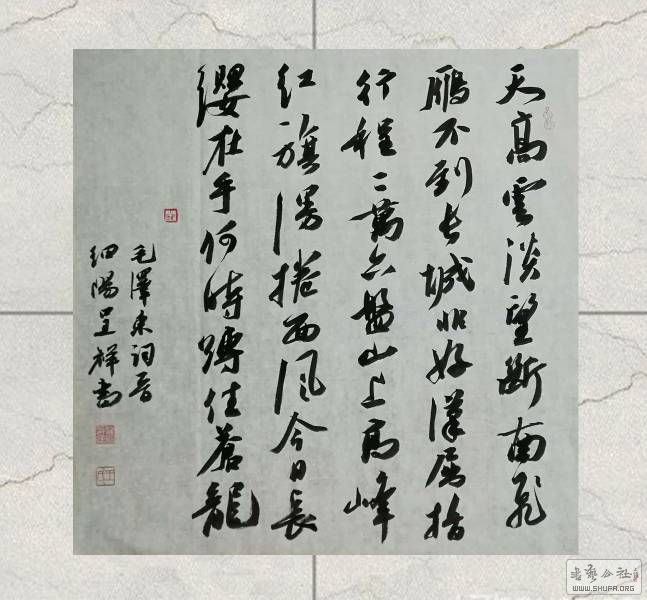 天高雲淡望斷南飛
鴈不到长城非好漢屈指
行程二萬六盤山上高峰
红旗漫捲西风今日長
纓在手何時缚住蒼龍
毛澤東词一首
细陽呈祥書
书艺公社
WWW.SHUFA.ORG